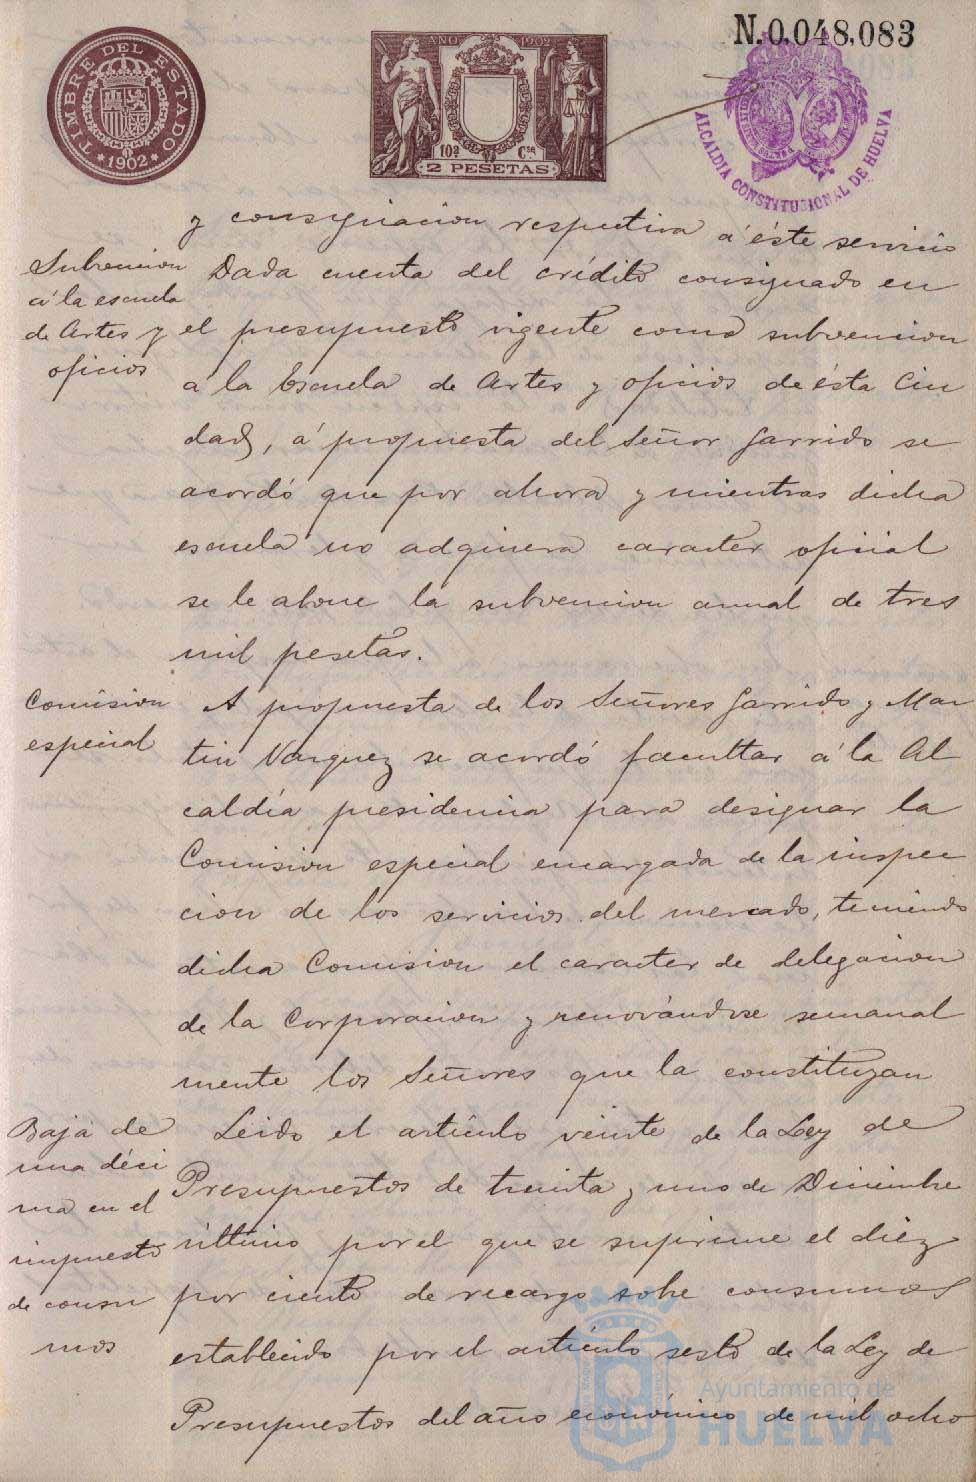 N.0,048,083
TIMBRE DEL ESTADO
1902
AÑO 1902
10ª Cse
2 PESETAS
ALCALDIA CONSTITUCIONAL DE HUELVA
y consignacion respectiva a éste servicio
Subvencion
á la escuela
de Artes y
oficios
Dada cuenta del crédito consignado en
el presupuesto vigente como subvencion
á la Escuela de Artes y oficios de ésta Ciu
dad, á propuesta del Señor Garrido se
acordó que por ahora y mientras dicha
escuela no adquiera caracter oficial
se le abone la subvencion anual de tres
mil pesetas.
Comision
especial
A propuesta de los Señores Garrido y Mar
tin Vazquez se acordó facultar á la Al
caldía presidencia para designar la
Comision especial encargada de la inspec
cion de los servicios del mercado, teniendo
dicha Comision el caracter de delegacion
de la Corporacion y renovándose semanal
mente los Señores que la constituyan
Baja de
una déci
ma en el
impuesto
de consu
mos
Leido el artículo veinte de la Ley de
Presupuestos de treinta y uno de Diciembre
último por el que se suprime el diez
por ciento de recargo sobre consumos
establecido por el artículo sesto de la Ley de
Presupuestos del año económico de mil ocho
Ayuntamiento de
HUELVA